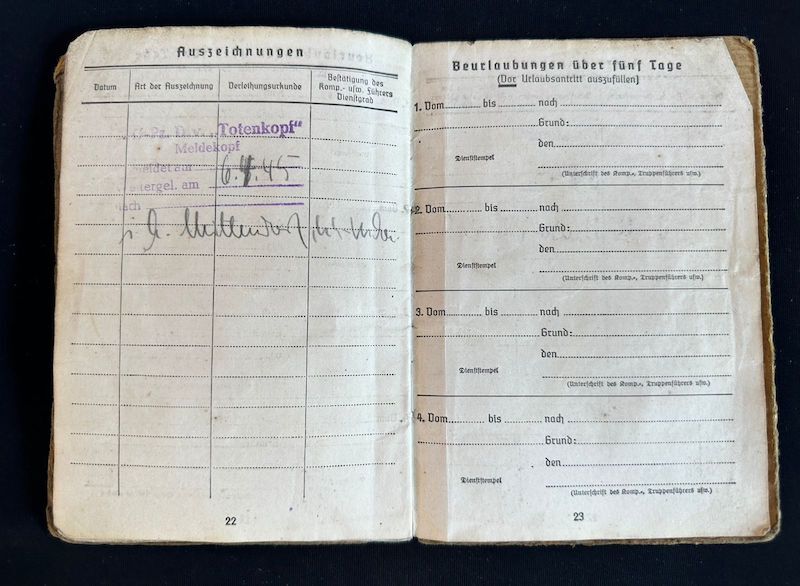 Auszeichnungen
Datum
Art der Auszeichnung
Verleihungsurkunde
Bestätigung des
Komp.- usw. Führers
Dienstgrad
„Totenkopf“
Meldekopf
am
22
Beurlaubungen über fünf Tage
(Vor Urlaubsantritt auszufüllen)
1. Vom bis nach
Grund:
den
Dienststempel
(Unterschrift des Komp.-, Truppenführers usw.)
2. Vom bis nach
Grund:
den
Dienststempel
(Unterschrift des Komp.-, Truppenführers usw.)
3. Vom bis nach
Grund:
den
Dienststempel
(Unterschrift des Komp.-, Truppenführers usw.)
4. Vom bis nach
Grund:
den
Dienststempel
(Unterschrift des Komp.-, Truppenführers usw.)
23